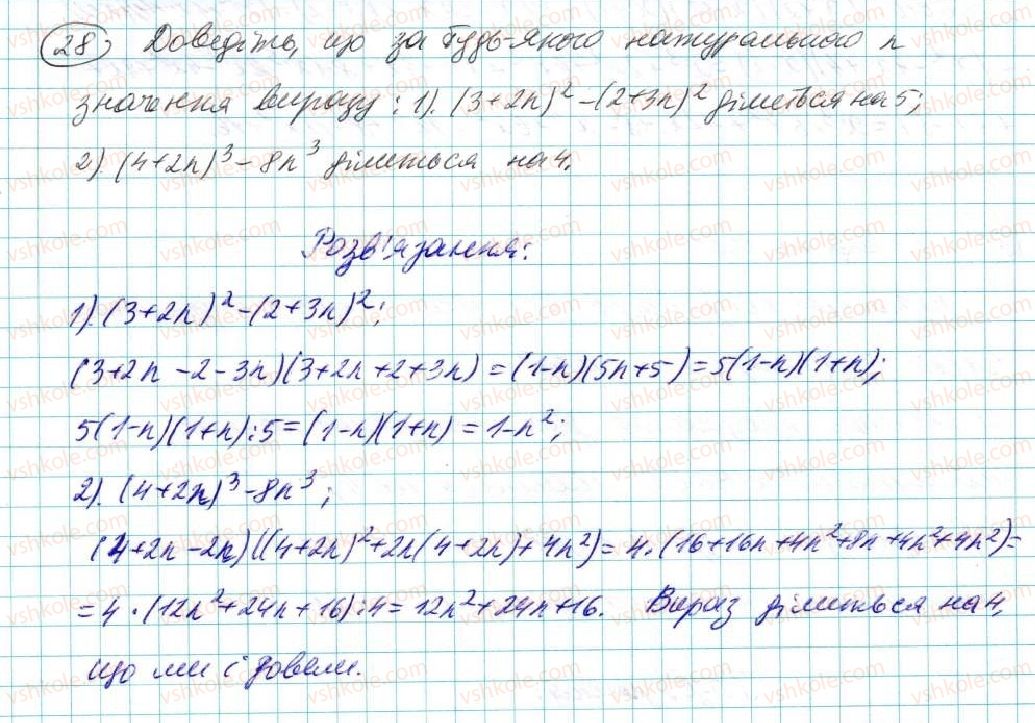 28) Доведіть, що за будь-якого натурального n
значення виразу: 1). (3+2n)² - (2+3n)² ділиться на 5;
2). (4+2n)³ - 8n³ ділиться на 4.
Розв'язання:
1). (3+2n)² - (2+3n)²;
(3+2n-2-3n)(3+2n+2+3n) = (1-n)(5n+5) = 5(1-n)(1+n);
5(1-n)(1+n):5 = (1-n)(1+n) = 1-n²;
2). (4+2n)³ - 8n³;
(4+2n-2n)((4+2n)²+2n(4+2n)+4n²) = 4·(16+16n+4n²+8n+4n²+4n²) =
= 4·(12n²+24n+16):4 = 12n²+24n+16. Вираз ділиться на 4,
що ми і довели.